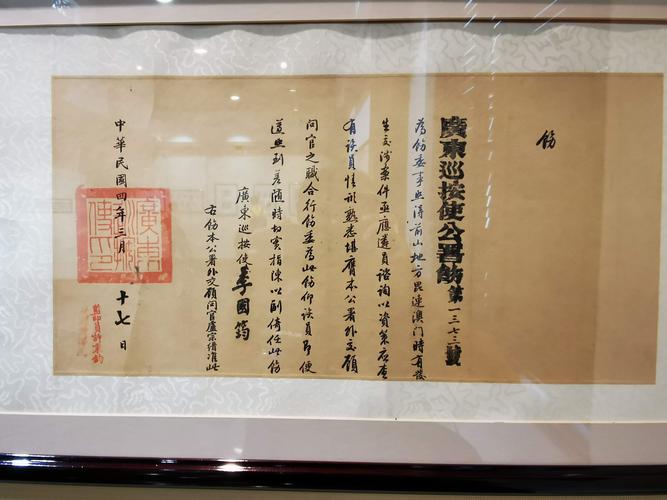 飭
廣東巡按使公署飭第一三七三號
為飭委事照得前山地方毘連澳门時有發
生交涉案件亟應遴員諮詢以資策应查
有该員情形熟悉堪膺本公署外交顧
问官之職合行飭委為此飭仰该員即便
遵照到差隨時切實指陳以副倚任此飭
廣東巡按使李國筠
右飭本公署外交顧问官盧宗縉准此
中華民國四年三月十七日
監印員許